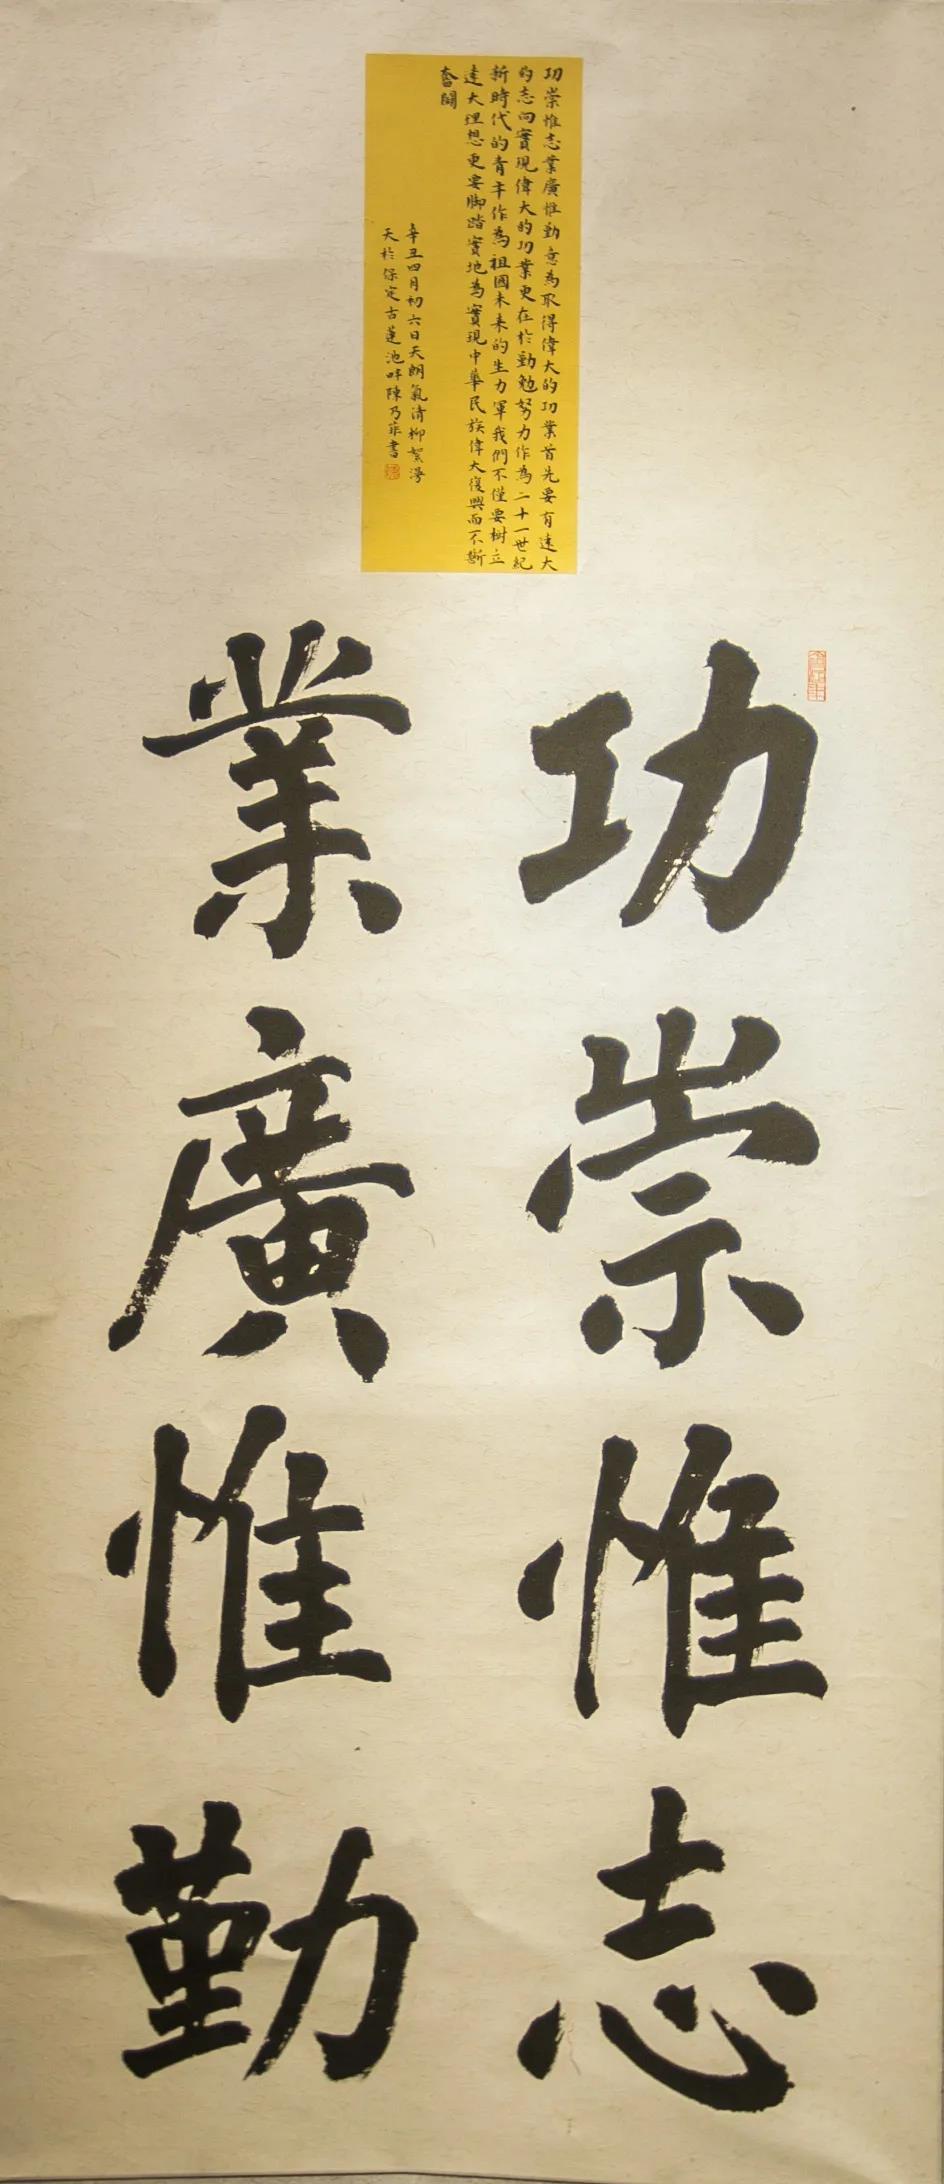 功崇惟志業廣惟勤意為取得偉大的功業首先要有遠大
的志向實現偉大的功業更在於勤勉努力作為二十一世紀
新時代的青年作為祖國未来的生力軍我們不僅要樹立
遠大理想更要脚踏實地為實現中華民族偉大復興而不斷
奮鬭
辛丑四月初六日天朗氣清柳絮漫
天於保定古蓮池畔陳乃菲書
功崇惟志
業廣惟勤